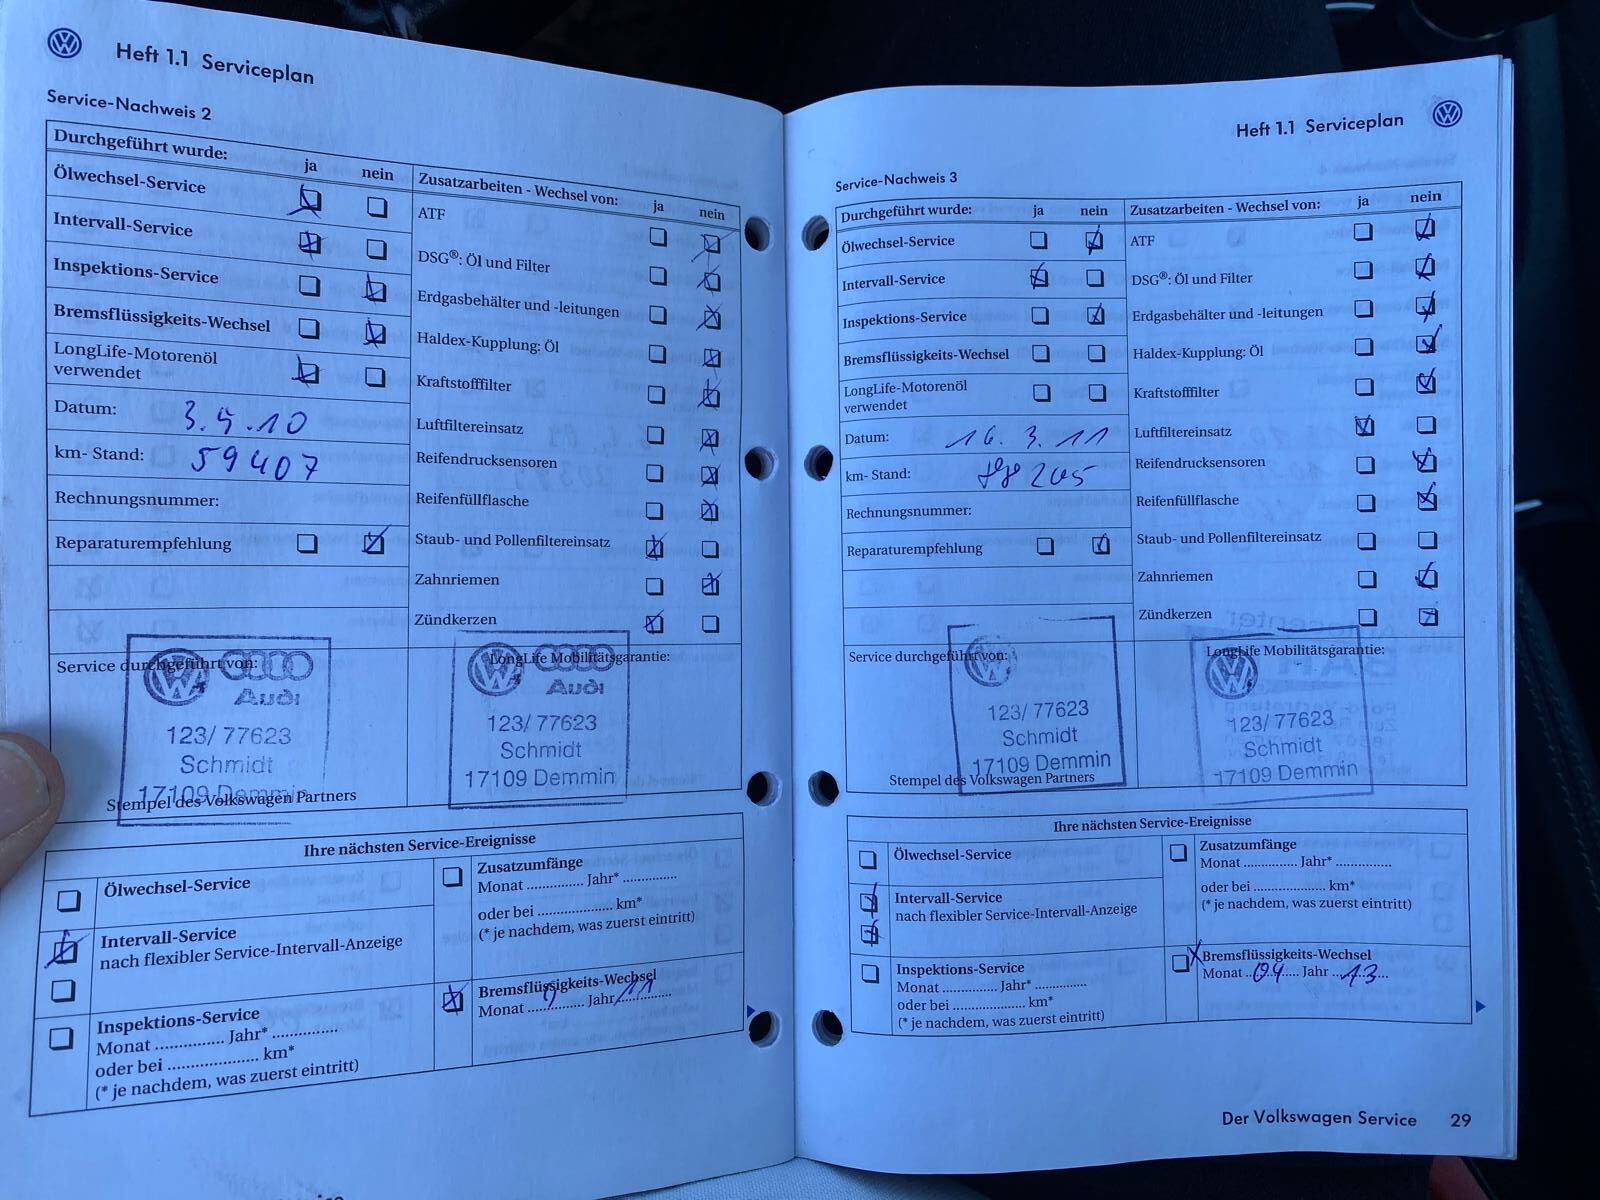 Heft 1.1 Serviceplan
Service-Nachweis 2
Durchgeführt wurde:
ja
nein
Ölwechsel-Service
Intervall-Service
Inspektions-Service
Bremsflüssigkeits-Wechsel
LongLife-Motorenöl
verwendet
Datum:
km- Stand: 59407
Rechnungsnummer:
Reparaturempfehlung
Zusatzarbeiten - Wechsel von:
ja
nein
ATF
DSG®: Öl und Filter
Erdgasbehälter und -leitungen
Haldex-Kupplung: Öl
Kraftstofffilter
Luftfiltereinsatz
Reifendrucksensoren
Reifenfüllflasche
Staub- und Pollenfiltereinsatz
Zahnriemen
Zündkerzen
Service durchgeführt von:
Audi
123/ 77623
Schmidt
17109 Demmin
Stempel des Volkswagen Partners
LongLife Mobilitätsgarantie:
Audi
123/ 77623
Schmidt
17109 Demmin
Ihre nächsten Service-Ereignisse
Ölwechsel-Service
Intervall-Service
nach flexibler Service-Intervall-Anzeige
Inspektions-Service
Monat ............... Jahr* ...............
oder bei .................... km*
(* je nachdem, was zuerst eintritt)
Zusatzumfänge
Monat ............... Jahr* ...............
oder bei .................... km*
(* je nachdem, was zuerst eintritt)
Bremsflüssigkeits-Wechsel
Monat ............... Jahr 11
Heft 1.1 Serviceplan
Service-Nachweis 3
Durchgeführt wurde:
ja
nein
Ölwechsel-Service
Intervall-Service
Inspektions-Service
Bremsflüssigkeits-Wechsel
LongLife-Motorenöl
verwendet
Datum: 16. 3. 11
km- Stand:
Rechnungsnummer:
Reparaturempfehlung
Zusatzarbeiten - Wechsel von:
ja
nein
ATF
DSG®: Öl und Filter
Erdgasbehälter und -leitungen
Haldex-Kupplung: Öl
Kraftstofffilter
Luftfiltereinsatz
Reifendrucksensoren
Reifenfüllflasche
Staub- und Pollenfiltereinsatz
Zahnriemen
Zündkerzen
Service durchgeführt von:
123/ 77623
Schmidt
17109 Demmin
Stempel des Volkswagen Partners
LongLife Mobilitätsgarantie:
123/ 77623
Schmidt
17109 Demmin
Ihre nächsten Service-Ereignisse
Ölwechsel-Service
Intervall-Service
nach flexibler Service-Intervall-Anzeige
Inspektions-Service
Monat ............... Jahr* ...............
oder bei .................... km*
(* je nachdem, was zuerst eintritt)
Zusatzumfänge
Monat ............... Jahr* ...............
oder bei .................... km*
(* je nachdem, was zuerst eintritt)
Bremsflüssigkeits-Wechsel
Monat 04 Jahr 13
Der Volkswagen Service 29